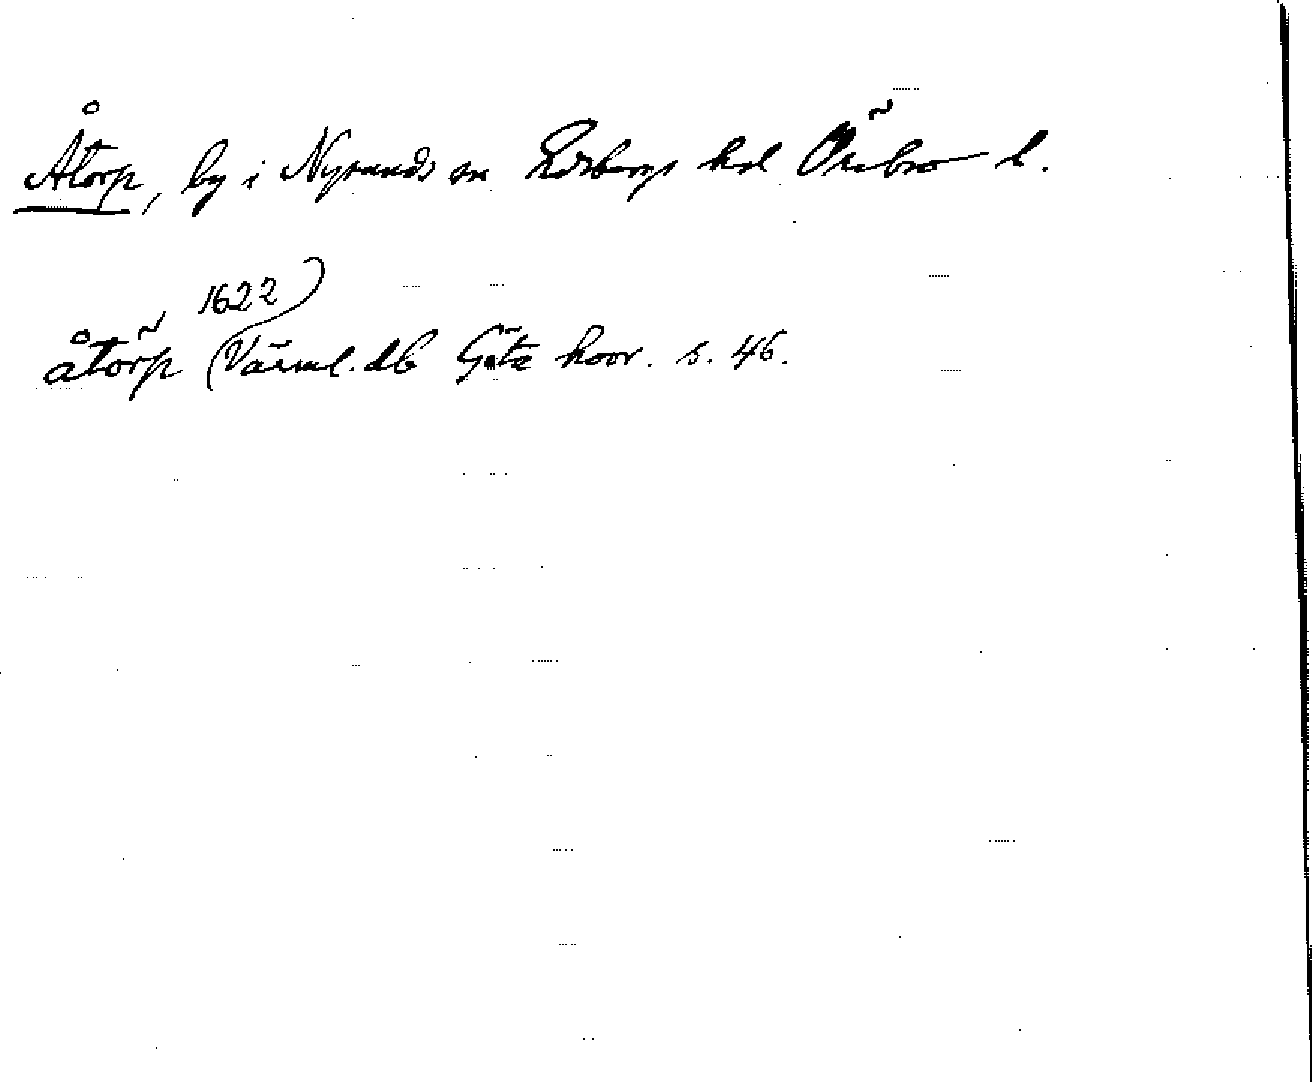 Åtorp, by i Nysunds sn Edsbergs hd Örebro l.
1622
åtörp (Värml. db Göta hovr. s. 46.